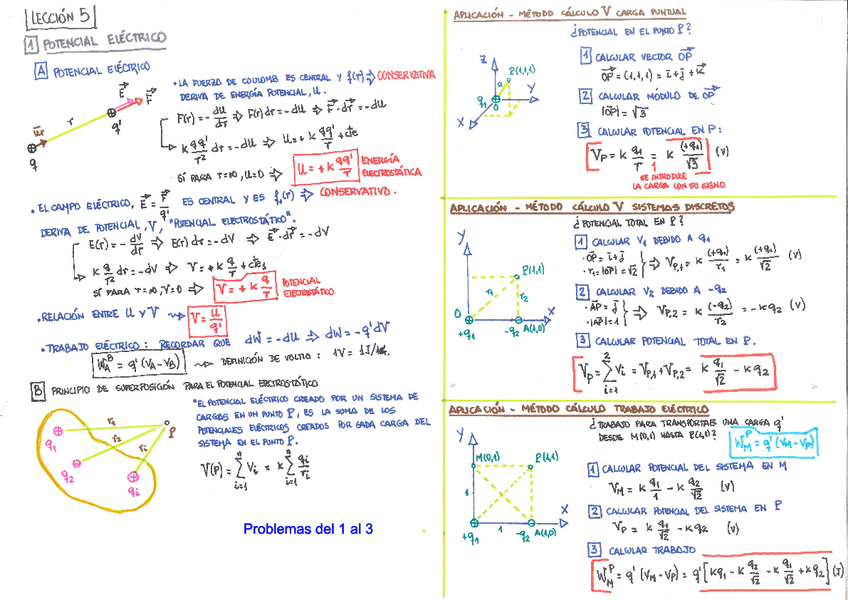 LECCIÓN 5
1 POTENCIAL ELÉCTRICO
A POTENCIAL ELÉCTRICO
• LA FUERZA DE COULOMB ES CENTRAL Y f(r) ⇒ CONSERVATIVA
DERIVA DE ENERGÍA POTENCIAL, U.
F(r) = - dU/dr ⇒ F(r) dr = -dU ⇒ F⃗·dr⃗ = -dU
K qq'/r² dr = -dU ⇒ U = + K qq'/r + cte
SI PARA r=∞, U=0 ⇒ U = + K qq'/r ENERGÍA ELECTROSTÁTICA
u⃗r r E⃗ F⃗
q q'
• EL CAMPO ELÉCTRICO, E⃗ = F⃗/q' ES CENTRAL Y ES f(r) ⇒ CONSERVATIVO.
DERIVA DE POTENCIAL, V, "POTENCIAL ELECTROSTÁTICO".
E(r) = - dV/dr ⇒ E(r) dr = -dV ⇒ E⃗·dr⃗ = -dV
K q/r² dr = -dV ⇒ V = + K q/r + cte
SI PARA r=∞, V=0 ⇒ V = + K q/r POTENCIAL ELECTROSTÁTICO
• RELACIÓN ENTRE U Y V V = U/q'
• TRABAJO ELÉCTRICO: RECORDAR QUE dW = -dU ⇒ dW = -q'dV
W_A^B = q' (V_A - V_B) DEFINICIÓN DE VOLTIO: 1V = 1J/1C
B PRINCIPIO DE SUPERPOSICIÓN PARA EL POTENCIAL ELECTROSTÁTICO
"EL POTENCIAL ELÉCTRICO CREADO POR UN SISTEMA DE
CARGAS EN UN PUNTO P, ES LA SUMA DE LOS
POTENCIALES ELÉCTRICOS CREADOS POR CADA CARGA DEL
SISTEMA EN EL PUNTO P.
V(P) = Σ_{i=1}^{n} Vi = K Σ_{i=1}^{n} qi/ri
r1 r2 ri P
q1 q2 qi
Problemas del 1 al 3
APLICACIÓN - MÉTODO CÁLCULO V CARGA PUNTUAL
¿POTENCIAL EN EL PUNTO P?
1 CALCULAR VECTOR OP⃗
OP⃗ = (1,1,1) = i⃗ + j⃗ + k⃗
2 CALCULAR MÓDULO DE OP⃗
|OP⃗| = √3
3 CALCULAR POTENCIAL EN P:
V_P = K q1/r = K (+q1)/√3 (V)
SE INTRODUCE
LA CARGA CON SU SIGNO
Z P(1,1,1) q1 O Y X
APLICACIÓN - MÉTODO CÁLCULO V SISTEMAS DISCRETOS
¿POTENCIAL TOTAL EN P?
1 CALCULAR V1 DEBIDO A q1
• OP⃗ = i⃗ + j⃗
• r1 = |OP⃗| = √2 ⇒ V_P,1 = K (+q1)/r1 = K (+q1)/√2 (V)
2 CALCULAR V2 DEBIDO A -q2
• AP⃗ = j⃗
• |AP⃗| = 1 ⇒ V_P,2 = K (+q2)/r2 = -K q2 (V)
3 CALCULAR POTENCIAL TOTAL EN P.
V_P = Σ_{i=1}^{2} Vi = V_P,1 + V_P,2 = K q1/√2 - K q2
Y P(1,1) r1 r2 O X
+q1 -q2 A(1,0)
APLICACIÓN - MÉTODO CÁLCULO TRABAJO ELÉCTRICO
¿TRABAJO PARA TRANSPORTAR UNA CARGA q'
DESDE M(0,1) HASTA P(1,1)? W_M^P = q' (V_M - V_P)
1 CALCULAR POTENCIAL DEL SISTEMA EN M
V_M = K q1/1 - K q2/√2 (V)
2 CALCULAR POTENCIAL DEL SISTEMA EN P
V_P = K q1/√2 - K q2 (V)
3 CALCULAR TRABAJO
W_M^P = q' (V_M - V_P) = q' [K q1 - K q2/√2 - K q1/√2 + K q2] (J)
Y M(0,1) P(1,1) 1 X
+q1 1 -q2 A(1,0)